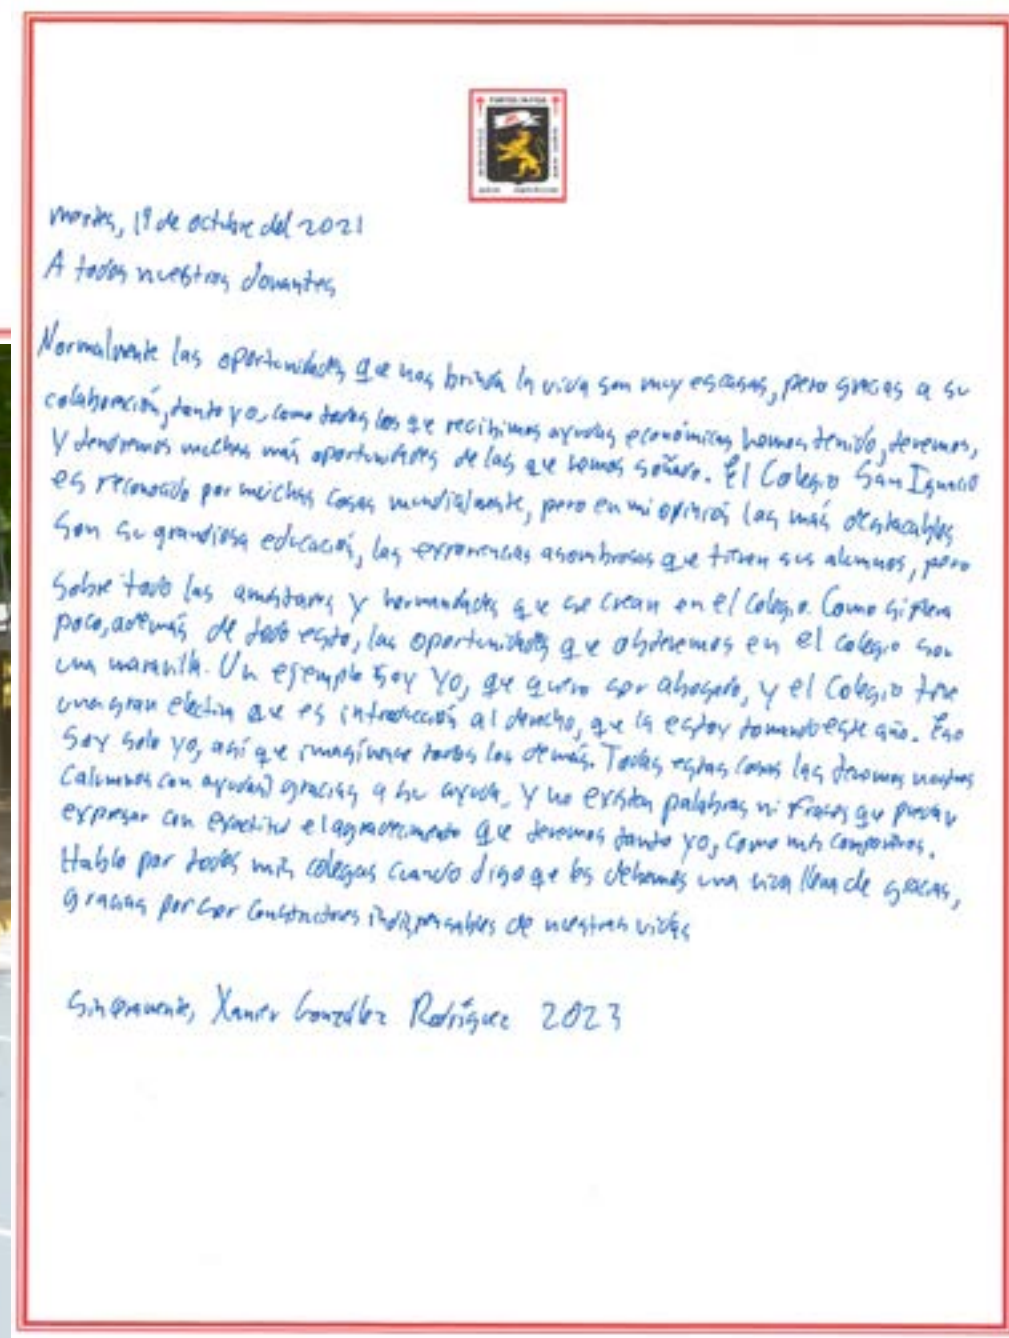 martes, 19 de octubre del 2021
A todos nuestros donantes
Normalmente las oportunidades que nos brinda la vida son muy escasas, pero gracias a su
colaboración, tanto yo, como todos los que recibimos ayudas económicas hemos tenido, tenemos,
y tendremos muchas más oportunidades de las que hemos soñado. El Colegio San Ignacio
es reconocido por muchas cosas mundialmente, pero en mi opinión las más destacables
son su grandiosa educación, las experiencias asombrosas que tienen sus alumnos, pero
sobre todo las amistades y hermandades que se crean en el Colegio. Como si fuera
poco, además de todo esto, las oportunidades que obtenemos en el colegio son
una maravilla. Un ejemplo soy yo, que quiero ser abogado, y el Colegio tiene
una gran electiva que es introducción al derecho, que la estoy tomando este año. Eso
soy solo yo, así que imagínense todos los demás. Todas estas cosas las tenemos nosotros
(alumnos con ayudas) gracias a su ayuda, y no existen palabras ni frases que puedan
expresar con exactitud el agradecimiento que tenemos tanto yo, como mis compañeros.
Hablo por todos mis colegas cuando digo que les debemos una vida llena de gracias,
gracias por ser constructores indispensables de nuestras vidas
Sinceramente, Xavier González Rodríguez 2023